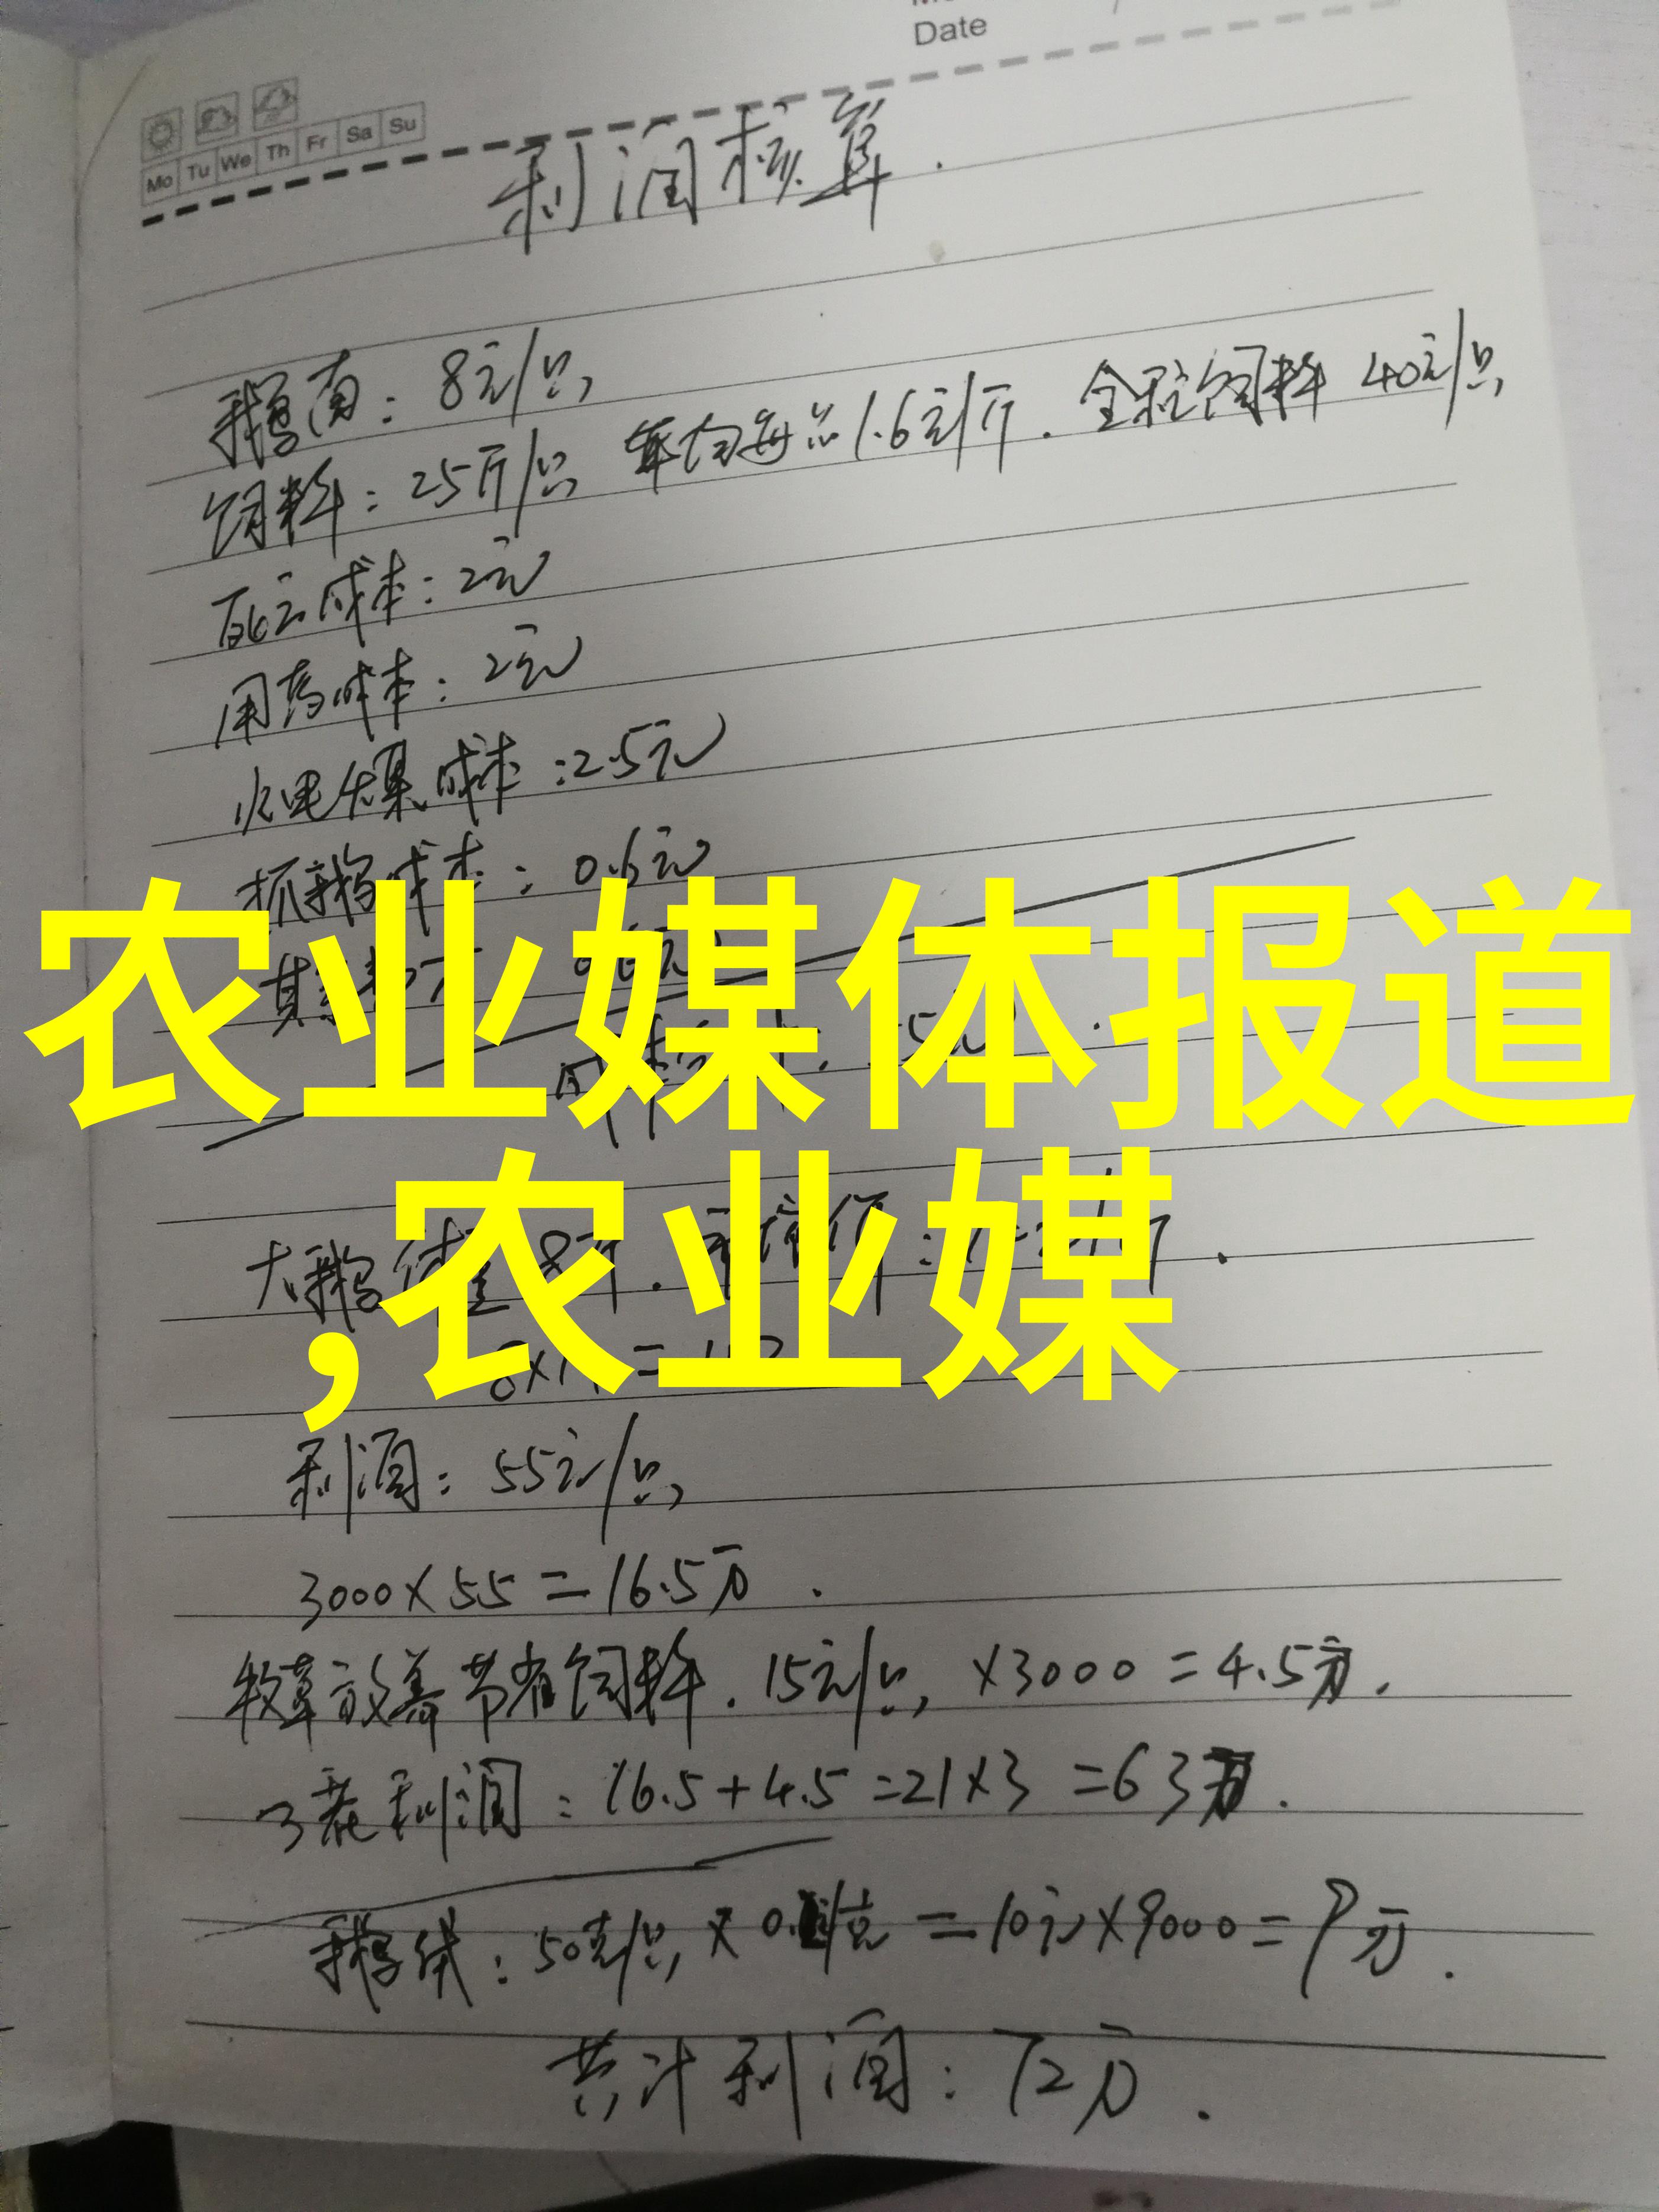 Date
Mo Tu We Th Fr Sa Su
利润核算.
鹅苗: 8元/只
饲料: 25斤/只 平均每斤1.6元/斤. 全程饲料 40元/只
死亡成本: 2元
用药成本: 2元
水电煤成本: 2.5元
抓鹅成本: 0.6元
农业媒体报道
,农业媒
大鹅体重 8斤.
利润: 55元/只
3000×55=16.5万.
牧草放养节省饲料. 15元/只, ×3000=4.5万.
3茬利润: 16.5+4.5=21×3=63万.
鹅绒: 50克/只 × =10元×9000=9万.
共计利润: 72万.